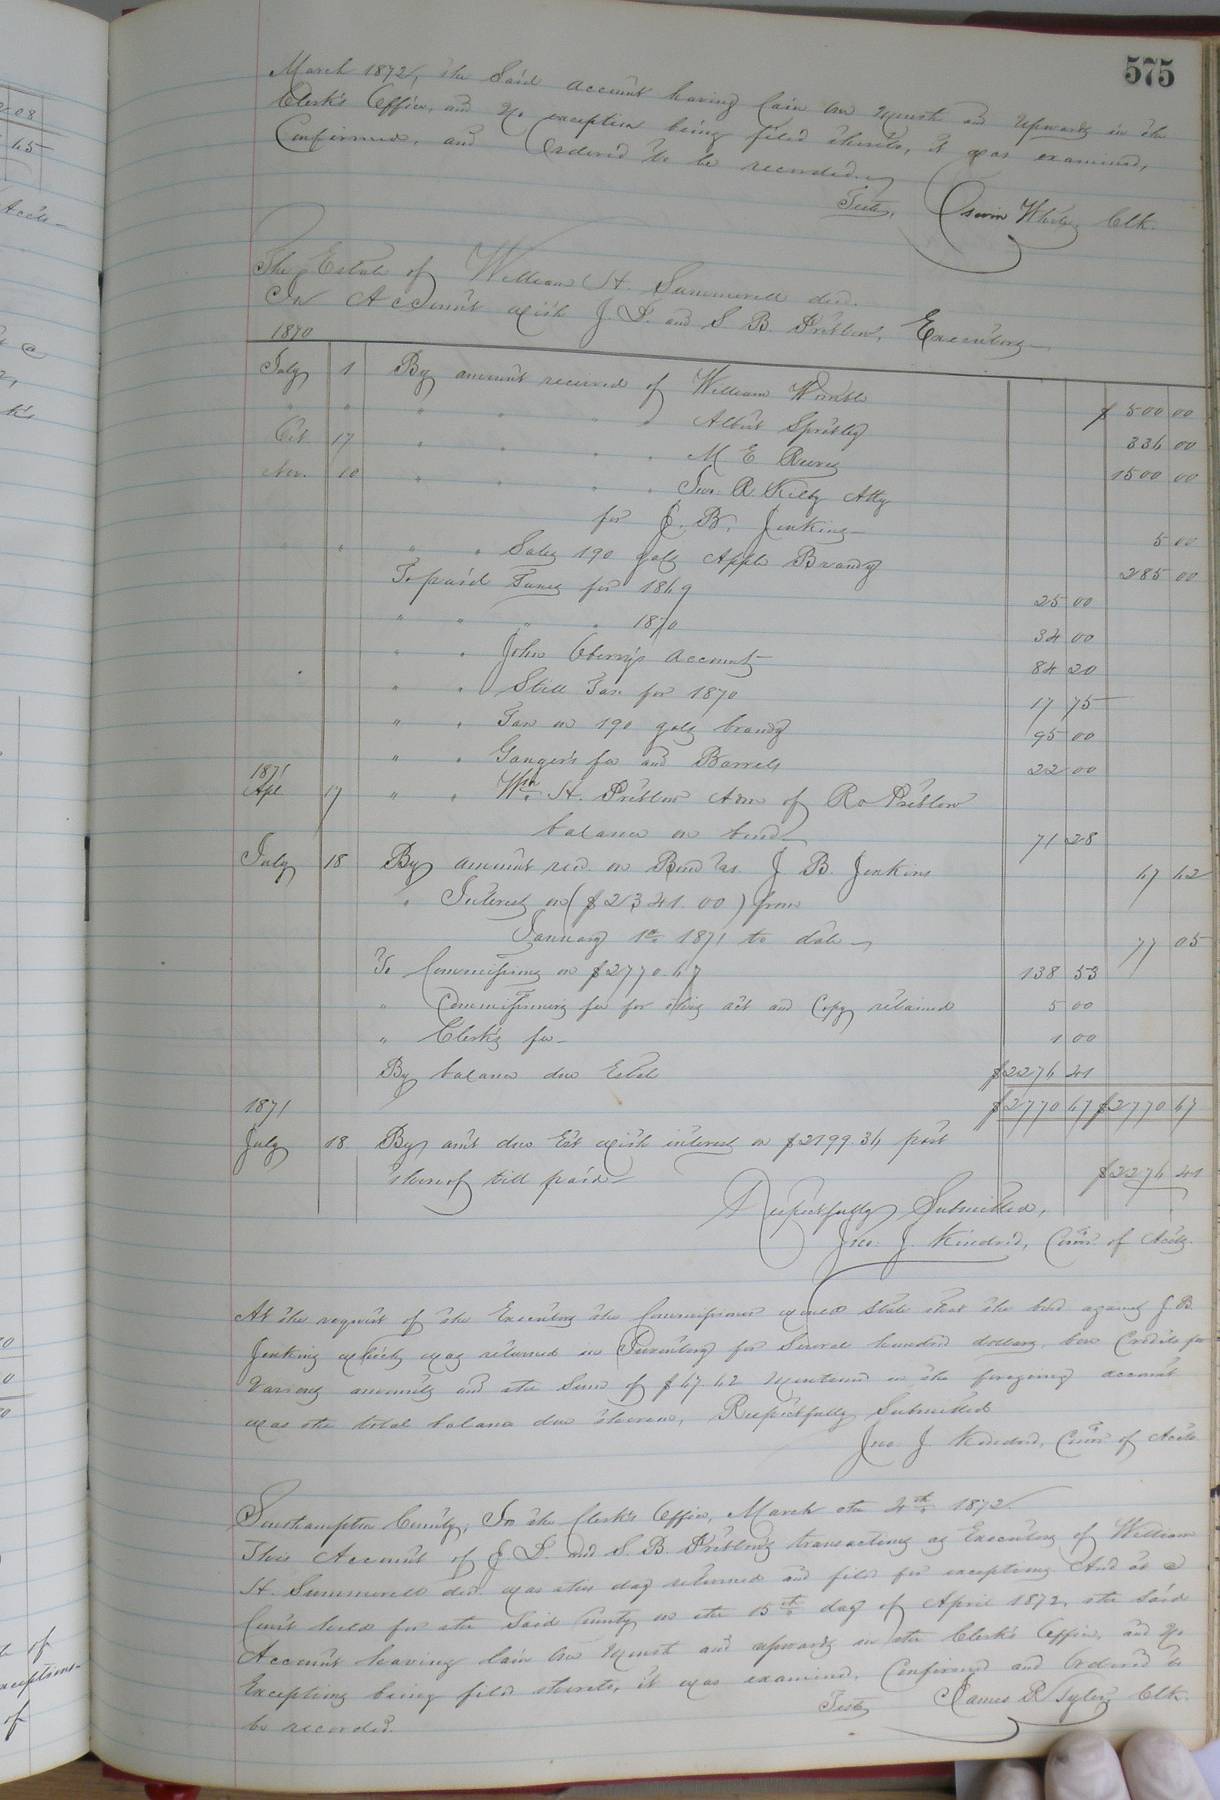 575
March 1872, the Said account having lain one Month and upwards in the
Clerk's Office, and no exception being filed thereto, it was examined,
Confirmed, and Ordered to be recorded.
Teste, Oswin White, Clk.
The Estate of William H. Summerell decd.
In Account with J. D. and S. B. Pretlow, Executors
1870
July 1 By amount received of William Womble $ 500 00
" " " " " " Albert Spratley 336 00
Oct 17 " " " " M E Reeves 1500 00
Nov. 10 " " " " Jno. R. Kilby Atty
for J. B. Jenkins 5 00
" " " " Sales 190 gals Apple Brandy 285 00
To paid Taxes for 1869 25 00
" " " " 1870 34 00
" " John Oberry's account 84 20
" " Still Tax for 1870 17 75
" " Tax on 190 gals brandy 95 00
" " Gauger's fee and Barrels 22 00
1871
Apl 17 " " Wm. H. Pretlow Adm of Ro Pretlow
balance on bond 71 28
July 18 By amount recd. on Bond vs. J B. Jenkins 67 62
" Interest on ($2341.00) from
January 1st 1871 to date 77 05
To Commissions on $2770.67 138 53
" Commissioners fee for stating act and Copy retained 5 00
" Clerk's fee 1 00
By balance due Estate $2276 41
$2770 67 $2770 67
1871
July 18 By amt due Est with interest on $2199.36 part
thereof till paid $2276 41
Respectfully Submitted,
Jno. J. Kindred, Comr. of Accts.
At the request of the Executors the Commissioner would State that the bond against J. B.
Jenkins which was returned in Inventory for Several hundred dollars, bore Credits for
various amounts and the Sum of $67.62 mentioned in the foregoing account
was the total balance due thereon, Respectfully Submitted
Jno J Kindred, Comr. of Accts
Southampton County, In the Clerk's Office, March the 4th 1872.
This Account of J D. and S. B Pretlow's transactions as Executors of William
H. Summerell decd. was this day returned and filed for exceptions And at a
Court held for the Said County on the 15th day of April 1872, the Said
Account having lain one Month and upwards in the Clerk's Office, and no
Exceptions being filed thereto, it was examined, Confirmed and Ordered to
be recorded. Teste James R Tyler, Clk.